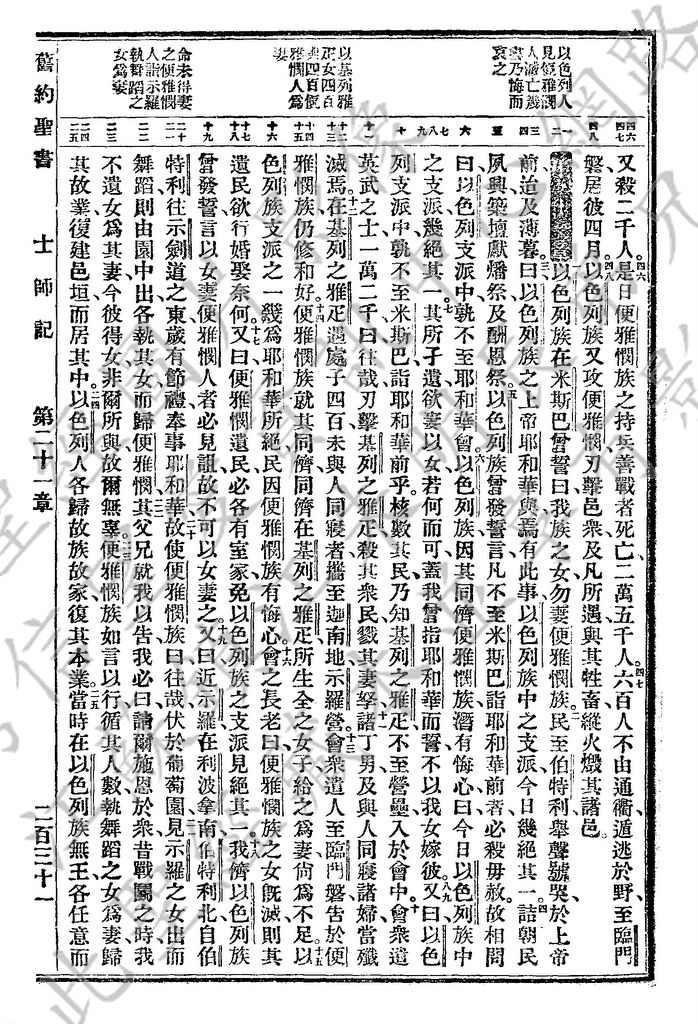 以色列人
見便雅憫
人滅亡幾
盡乃悔而
哀之
以基列雅
疋女四百
與四百便
雅憫人爲
妻
命未得妻
之便雅憫
人詣示羅
執舞蹈之
女爲妻
又殺二千人、是日便雅憫族之持兵善戰者死亡二萬五千人。六百人不由通衢、遁逃於野、至臨門
磐居彼四月、以色列族又攻便雅憫、刃擊邑衆、及凡所遇、與其牲畜、縱火燬其諸邑。
以色列族在米斯巴曾誓曰、我族之女勿妻便雅憫族、民至伯特利、舉聲號哭於上帝
前、迨及薄暮、曰、以色列族之上帝耶和華與、焉有此事、以色列族中之支派、今日幾絕其一、詰朝民
夙興、築壇獻燔祭、及酬恩祭、以色列族曾發誓言、凡不至米斯巴、詣耶和華前者、必殺毋赦、故相問
曰、以色列支派中、孰不至耶和華會、以色列族因其同儕便雅憫族、潛有悔心、曰、今日以色列族中
之支派幾絕其一、其所孑遺、欲妻以女、若何而可、蓋我曾指耶和華而誓、不以我女嫁彼、又曰、以色
列支派中孰不至米斯巴、詣耶和華前乎、核數其民、乃知基列之雅疋不至營壘、入於會中、會衆遣
英武之士一萬二千、曰、往哉、刃擊基列之雅疋、殺其衆民、戮其妻孥、諸丁男及與人同寢諸婦、當殲
滅焉、在基列之雅疋、遇處子四百、未與人同寢者、攜至迦南地、示羅營、會衆遣人至臨門磐、告於便
雅憫族、仍修和好、便雅憫族就其同儕、同儕在基列之雅疋、所生全之女子、給之爲妻、尙爲不足、以
色列族支派之一、幾爲耶和華所絕、民因便雅憫族有悔心、會之長老曰、便雅憫族之女旣滅、則其
遺民欲行婚娶、奈何、又曰、便雅憫遺民、必各有室家、免以色列族之支派、見絕其一、我儕以色列族
曾發誓言、以女妻便雅憫人者、必見詛、故不可以女妻之、又曰、近示羅在利波拿南、伯特利北、自伯
特利往示劍道之東、歲有節禮、奉事耶和華、故使便雅憫族曰、往哉、伏於葡萄園、見示羅之女出而
舞蹈、則由園中出、各執其女而歸便雅憫、其父兄就我以告、我必曰、請爾施恩於衆、昔戰鬭之時、我
不遺女爲其妻、今彼得女、非爾所與、故爾無辜、便雅憫族如言以行、循其人數、執舞蹈之女爲妻、歸
其故業、復建邑垣而居其中、以色列人各歸故族故家、復其本業、當時在以色列族無王、各任意而
舊約聖書　士師記　第二十一章　二百三十一